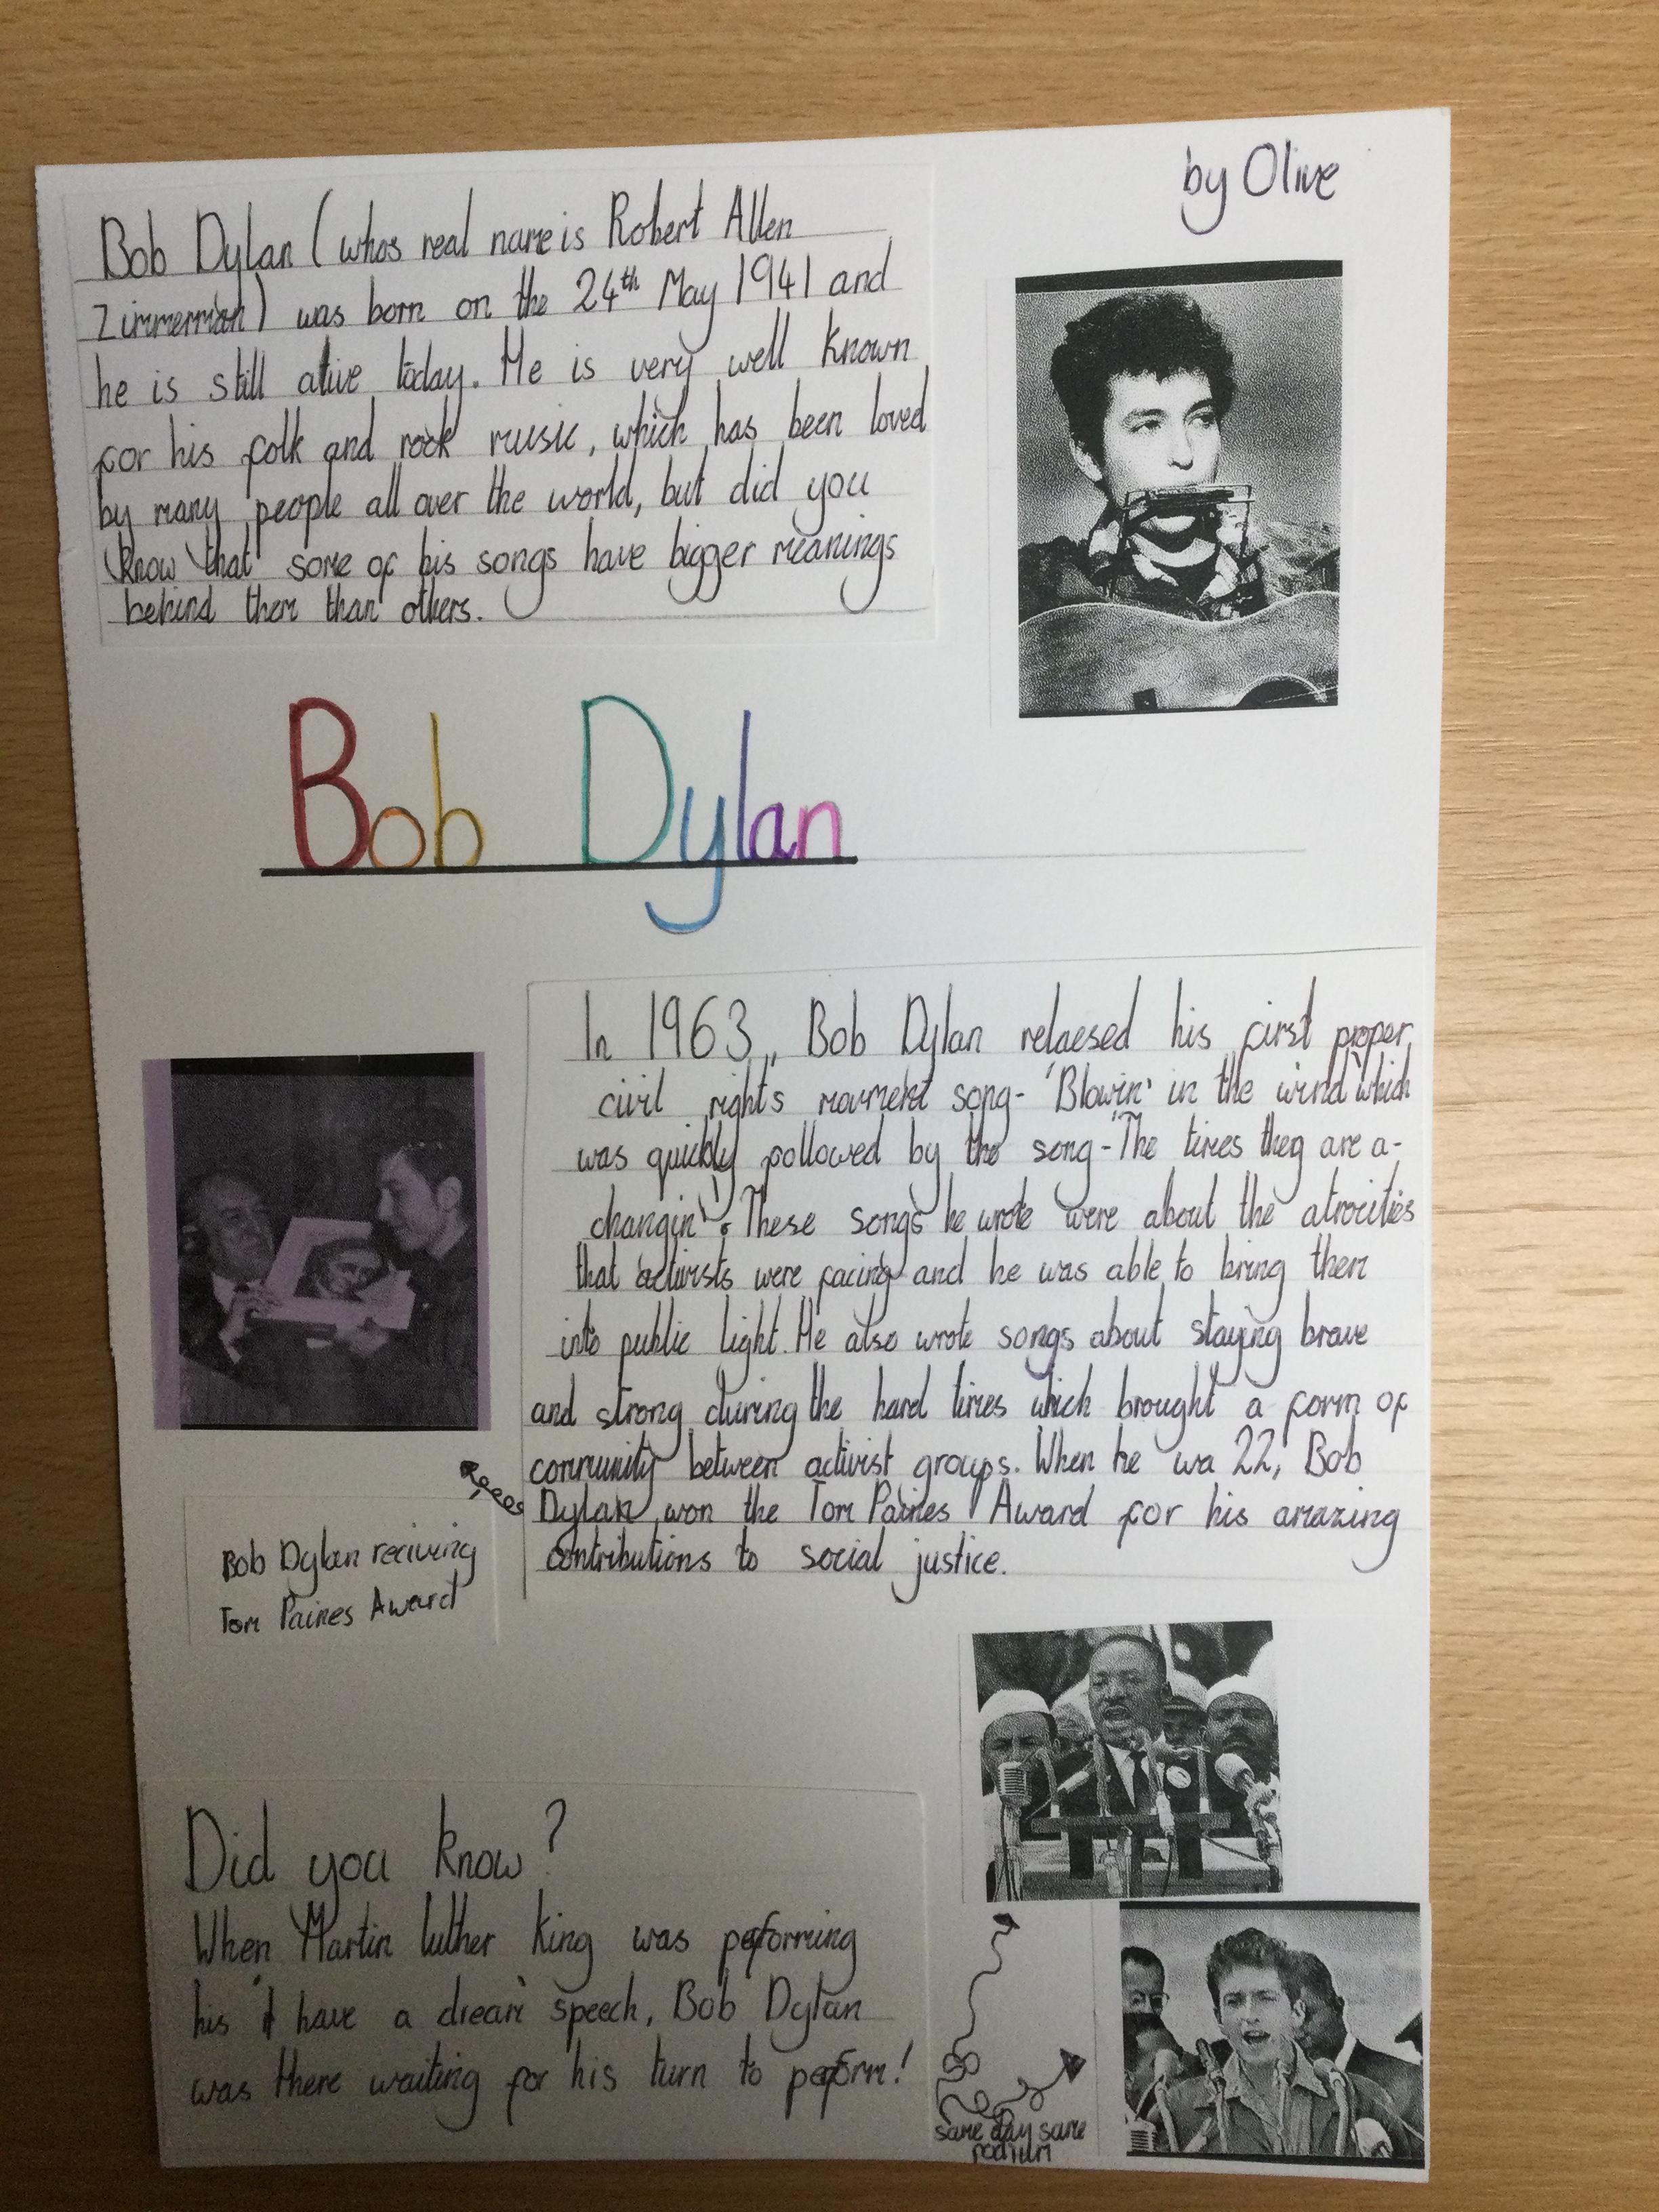 by Olive
Bob Dylan (whos real name is Robert Allen
Zimmerman) was born on the 24th May 1941 and
he is still alive today. He is very well known
for his folk and rock music, which has been loved
by many people all over the world, but did you
know that some of his songs have bigger meanings
behind them than others.
Bob Dylan
In 1963, Bob Dylan relaesed his first proper
civil rights movment song- 'Blowin' in the wind' which
was quickly followed by the song-'The times they are a-
changin'. These songs he wrote were about the atrocities
that activists were facing and he was able to bring them
into public light. He also wrote songs about staying brave
and strong during the hard times which brought a form of
community between activist groups. When he wa 22, Bob
Dylan won the Tom Paines Award for his amazing
contributions to social justice.
Bob Dylan reciving
Tom Paines Award
Did you know?
When Martin luther king was peforming
his I have a dream speech, Bob Dylan
was there waiting for his turn to peform!
same day same
podium